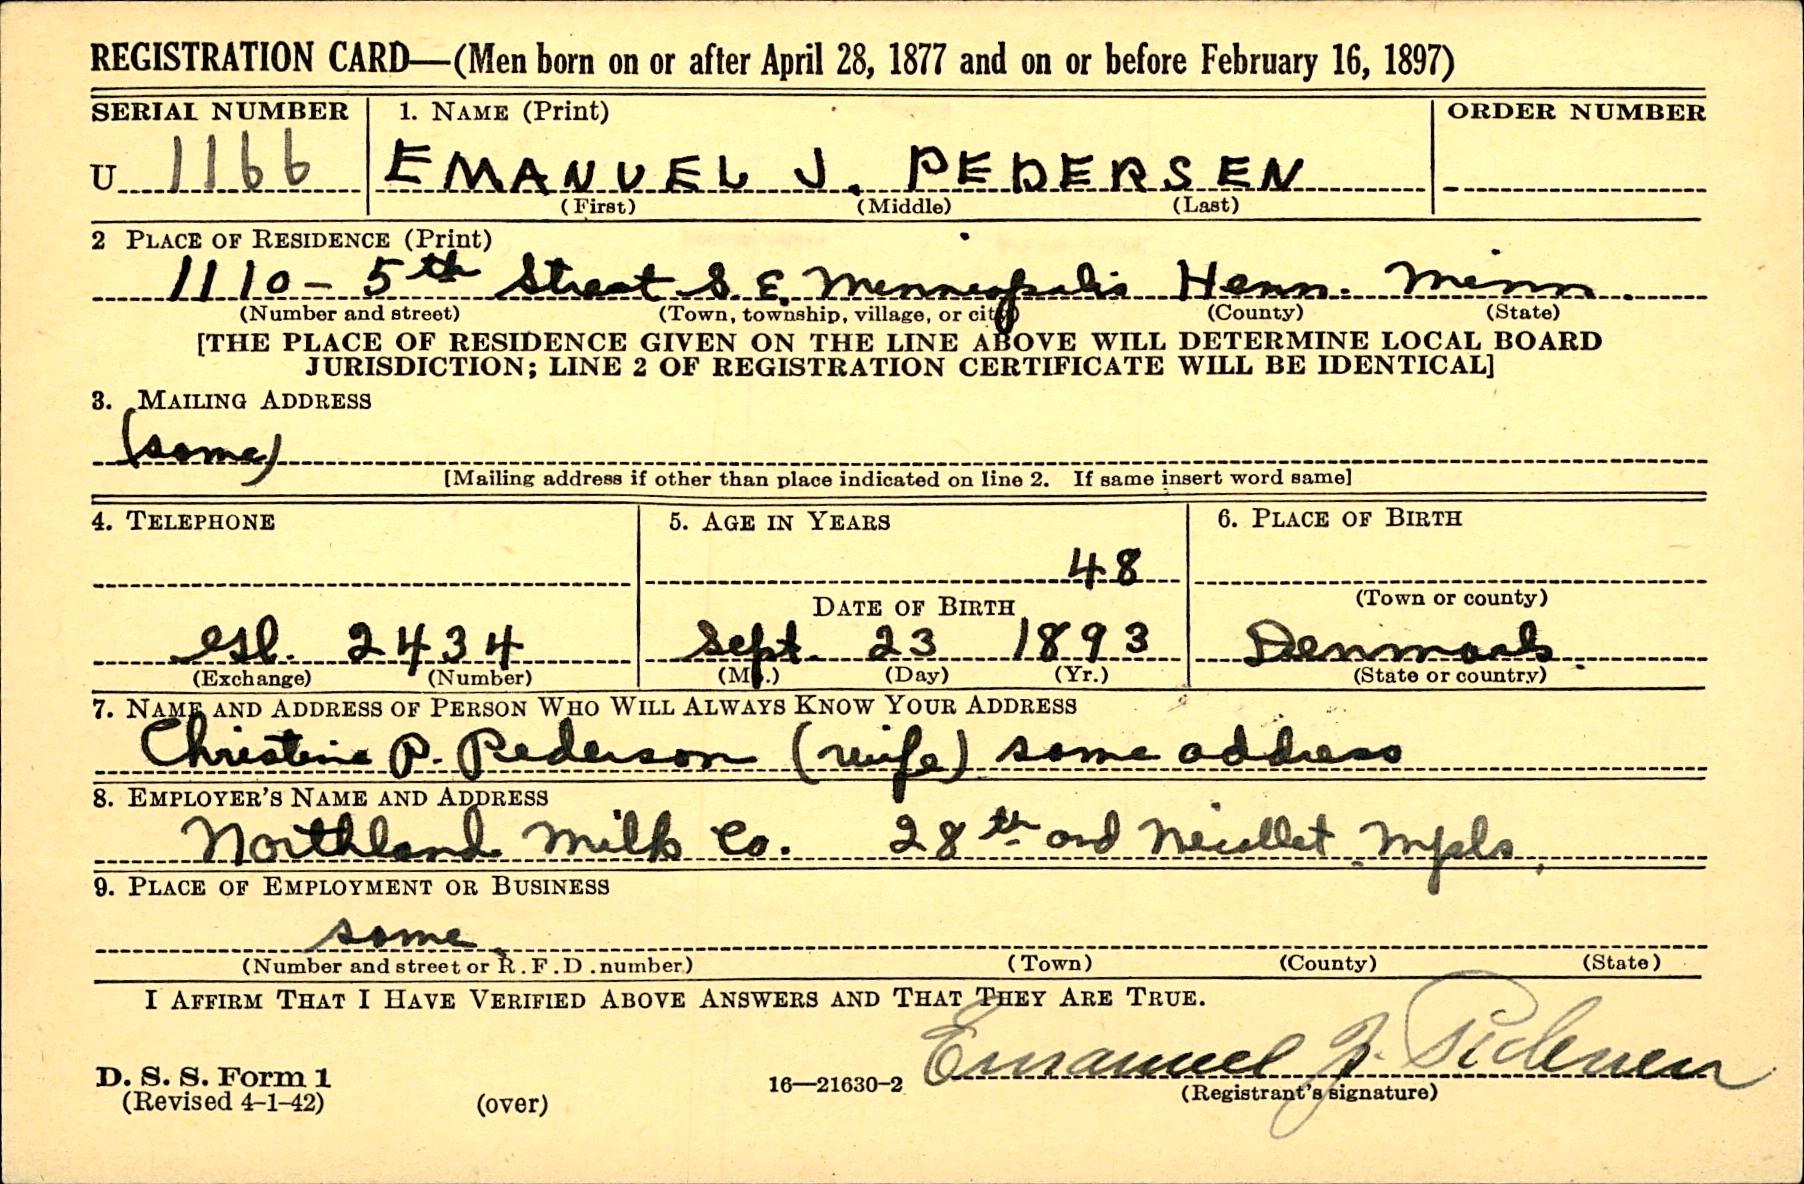 REGISTRATION CARD—(Men born on or after April 28, 1877 and on or before February 16, 1897)
SERIAL NUMBER 1. NAME (Print) ORDER NUMBER
U 1166 EMANUEL J. PEDERSEN
(First) (Middle) (Last)
2 PLACE OF RESIDENCE (Print)
1110 - 5th Street S. E. Minneapolis Henn. Minn.
(Number and street) (Town, township, village, or city) (County) (State)
[THE PLACE OF RESIDENCE GIVEN ON THE LINE ABOVE WILL DETERMINE LOCAL BOARD
JURISDICTION; LINE 2 OF REGISTRATION CERTIFICATE WILL BE IDENTICAL]
3. MAILING ADDRESS
(same)
[Mailing address if other than place indicated on line 2. If same insert word same]
4. TELEPHONE 5. AGE IN YEARS 6. PLACE OF BIRTH
48
DATE OF BIRTH (Town or county)
Gl. 2434 Sept. 23 1893 Denmark.
(Exchange) (Number) (Mo.) (Day) (Yr.) (State or country)
7. NAME AND ADDRESS OF PERSON WHO WILL ALWAYS KNOW YOUR ADDRESS
Christine P. Pederson (wife) same address
8. EMPLOYER'S NAME AND ADDRESS
Northland Milk Co. 28th and Nicollet Mpls.
9. PLACE OF EMPLOYMENT OR BUSINESS
same.
(Number and street or R. F. D. number) (Town) (County) (State)
I AFFIRM THAT I HAVE VERIFIED ABOVE ANSWERS AND THAT THEY ARE TRUE.
Emanuel J. Pedersen
D. S. S. Form 1
(Revised 4-1-42) (over) 16—21630-2 (Registrant's signature)